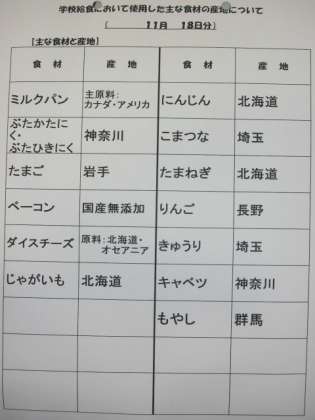 学校給食において使用した主な食材の産地について
( 11月 18日分)
[主な食材と産地]
食材 産地 食材 産地
ミルクパン 主原料:カナダ・アメリカ にんじん 北海道
ぶたかたにく・ぶたひきにく 神奈川 こまつな 埼玉
たまご 岩手 たまねぎ 北海道
ベーコン 国産無添加 りんご 長野
ダイスチーズ 原料:北海道・オセアニア きゅうり 埼玉
じゃがいも 北海道 キャベツ 神奈川
もやし 群馬